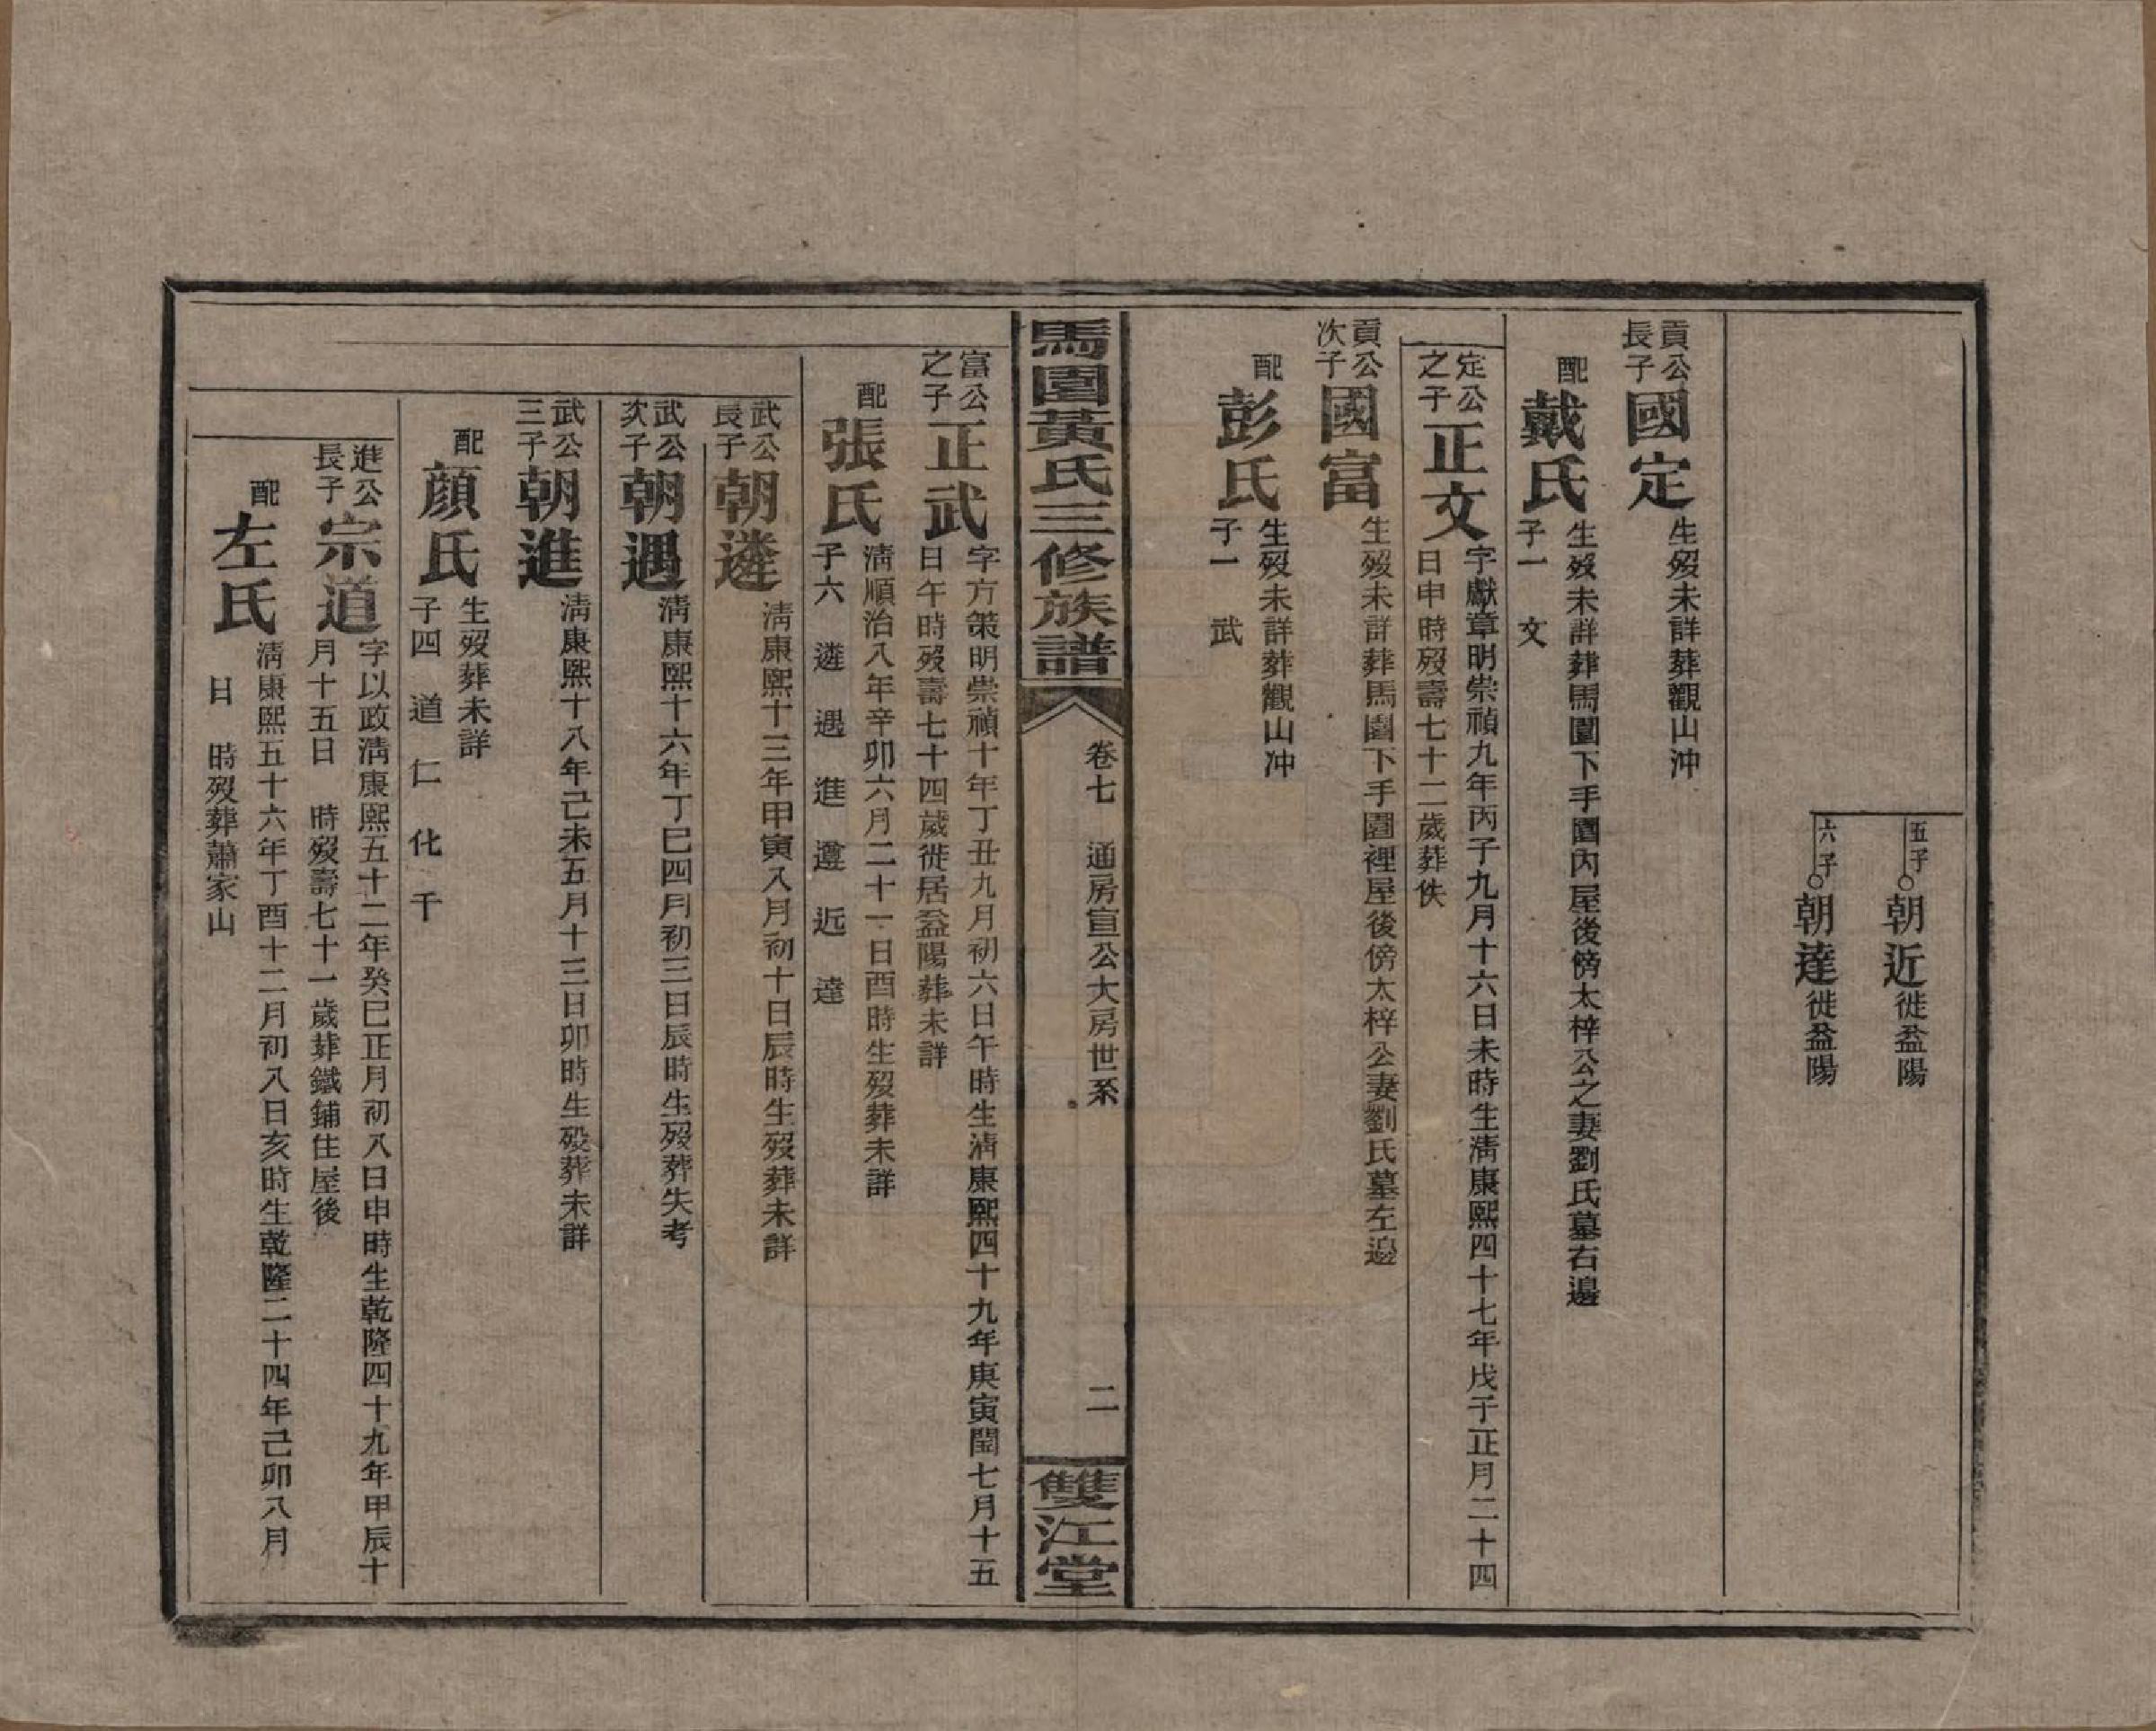 五子 朝近 徙益陽
六子 朝達 徙益陽
貢公長子 國定 生歿未詳葬觀山冲
配 戴氏 生歿未詳葬馬園下手園內屋後傍太梓公之妻劉氏墓右邊
子一 文
定公之子 正文 字獻章明崇禎九年丙子九月十六日未時生淸康熙四十七年戊子正月二十四
日申時歿壽七十二歲葬佚
貢公次子 國富 生歿未詳葬馬園下手園裡屋後傍太梓公妻劉氏墓左邉
配 彭氏 生歿未詳葬觀山冲
子一 武
馬園黃氏三修族譜
卷七 通房宣公大房世系
二
雙江堂
富公之子 正武 字方策明崇禎十年丁丑九月初六日午時生淸康熙四十九年庚寅閏七月十五
日午時歿壽七十四歲徙居益陽葬未詳
配 張氏 淸順治八年辛卯六月二十一日酉時生歿葬未詳
子六 遴 遇 進 遵 近 達
武公長子 朝遴 淸康熙十三年甲寅八月初十日辰時生歿葬未詳
武公次子 朝遇 淸康熙十六年丁巳四月初三日辰時生歿葬失考
武公三子 朝進 淸康熙十八年己未五月十三日卯時生歿葬未詳
配 顏氏 生歿葬未詳
子四 道 仁 化 千
進公長子 宗道 字以政淸康熙五十二年癸巳正月初八日申時生乾隆四十九年甲辰十
月十五日 時歿壽七十一歲葬鐵鋪住屋後
配 左氏 淸康熙五十六年丁酉十二月初八日亥時生乾隆二十四年己卯八月
日 時歿葬蕭家山